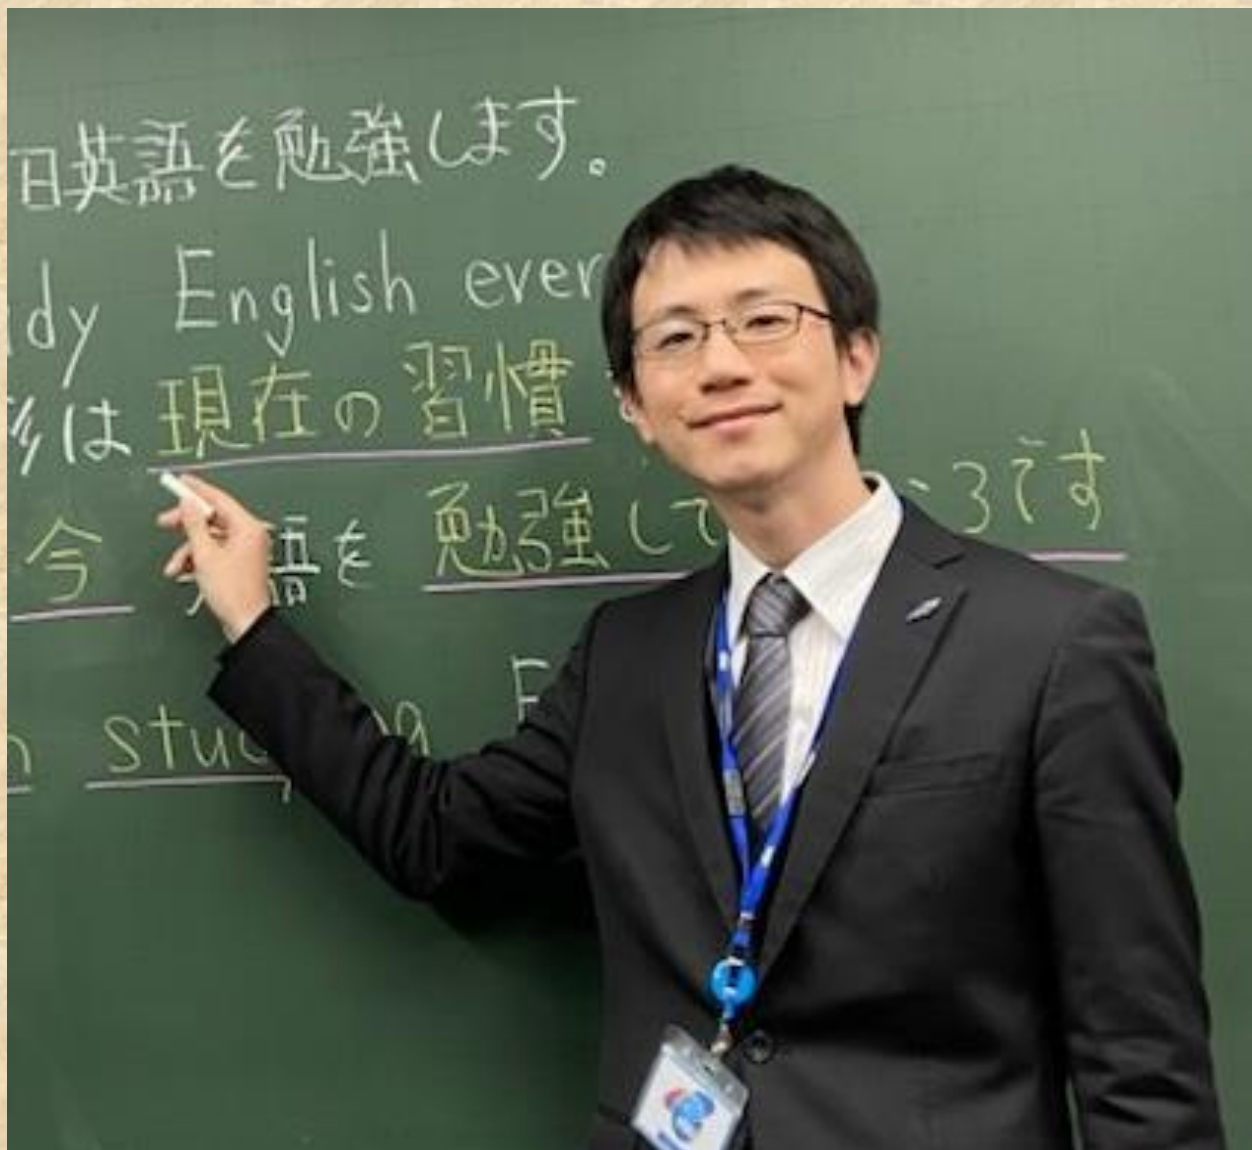 日英語を勉強します。
dy English ever
は 現在の習慣
今 語を 勉強して ろです
stu